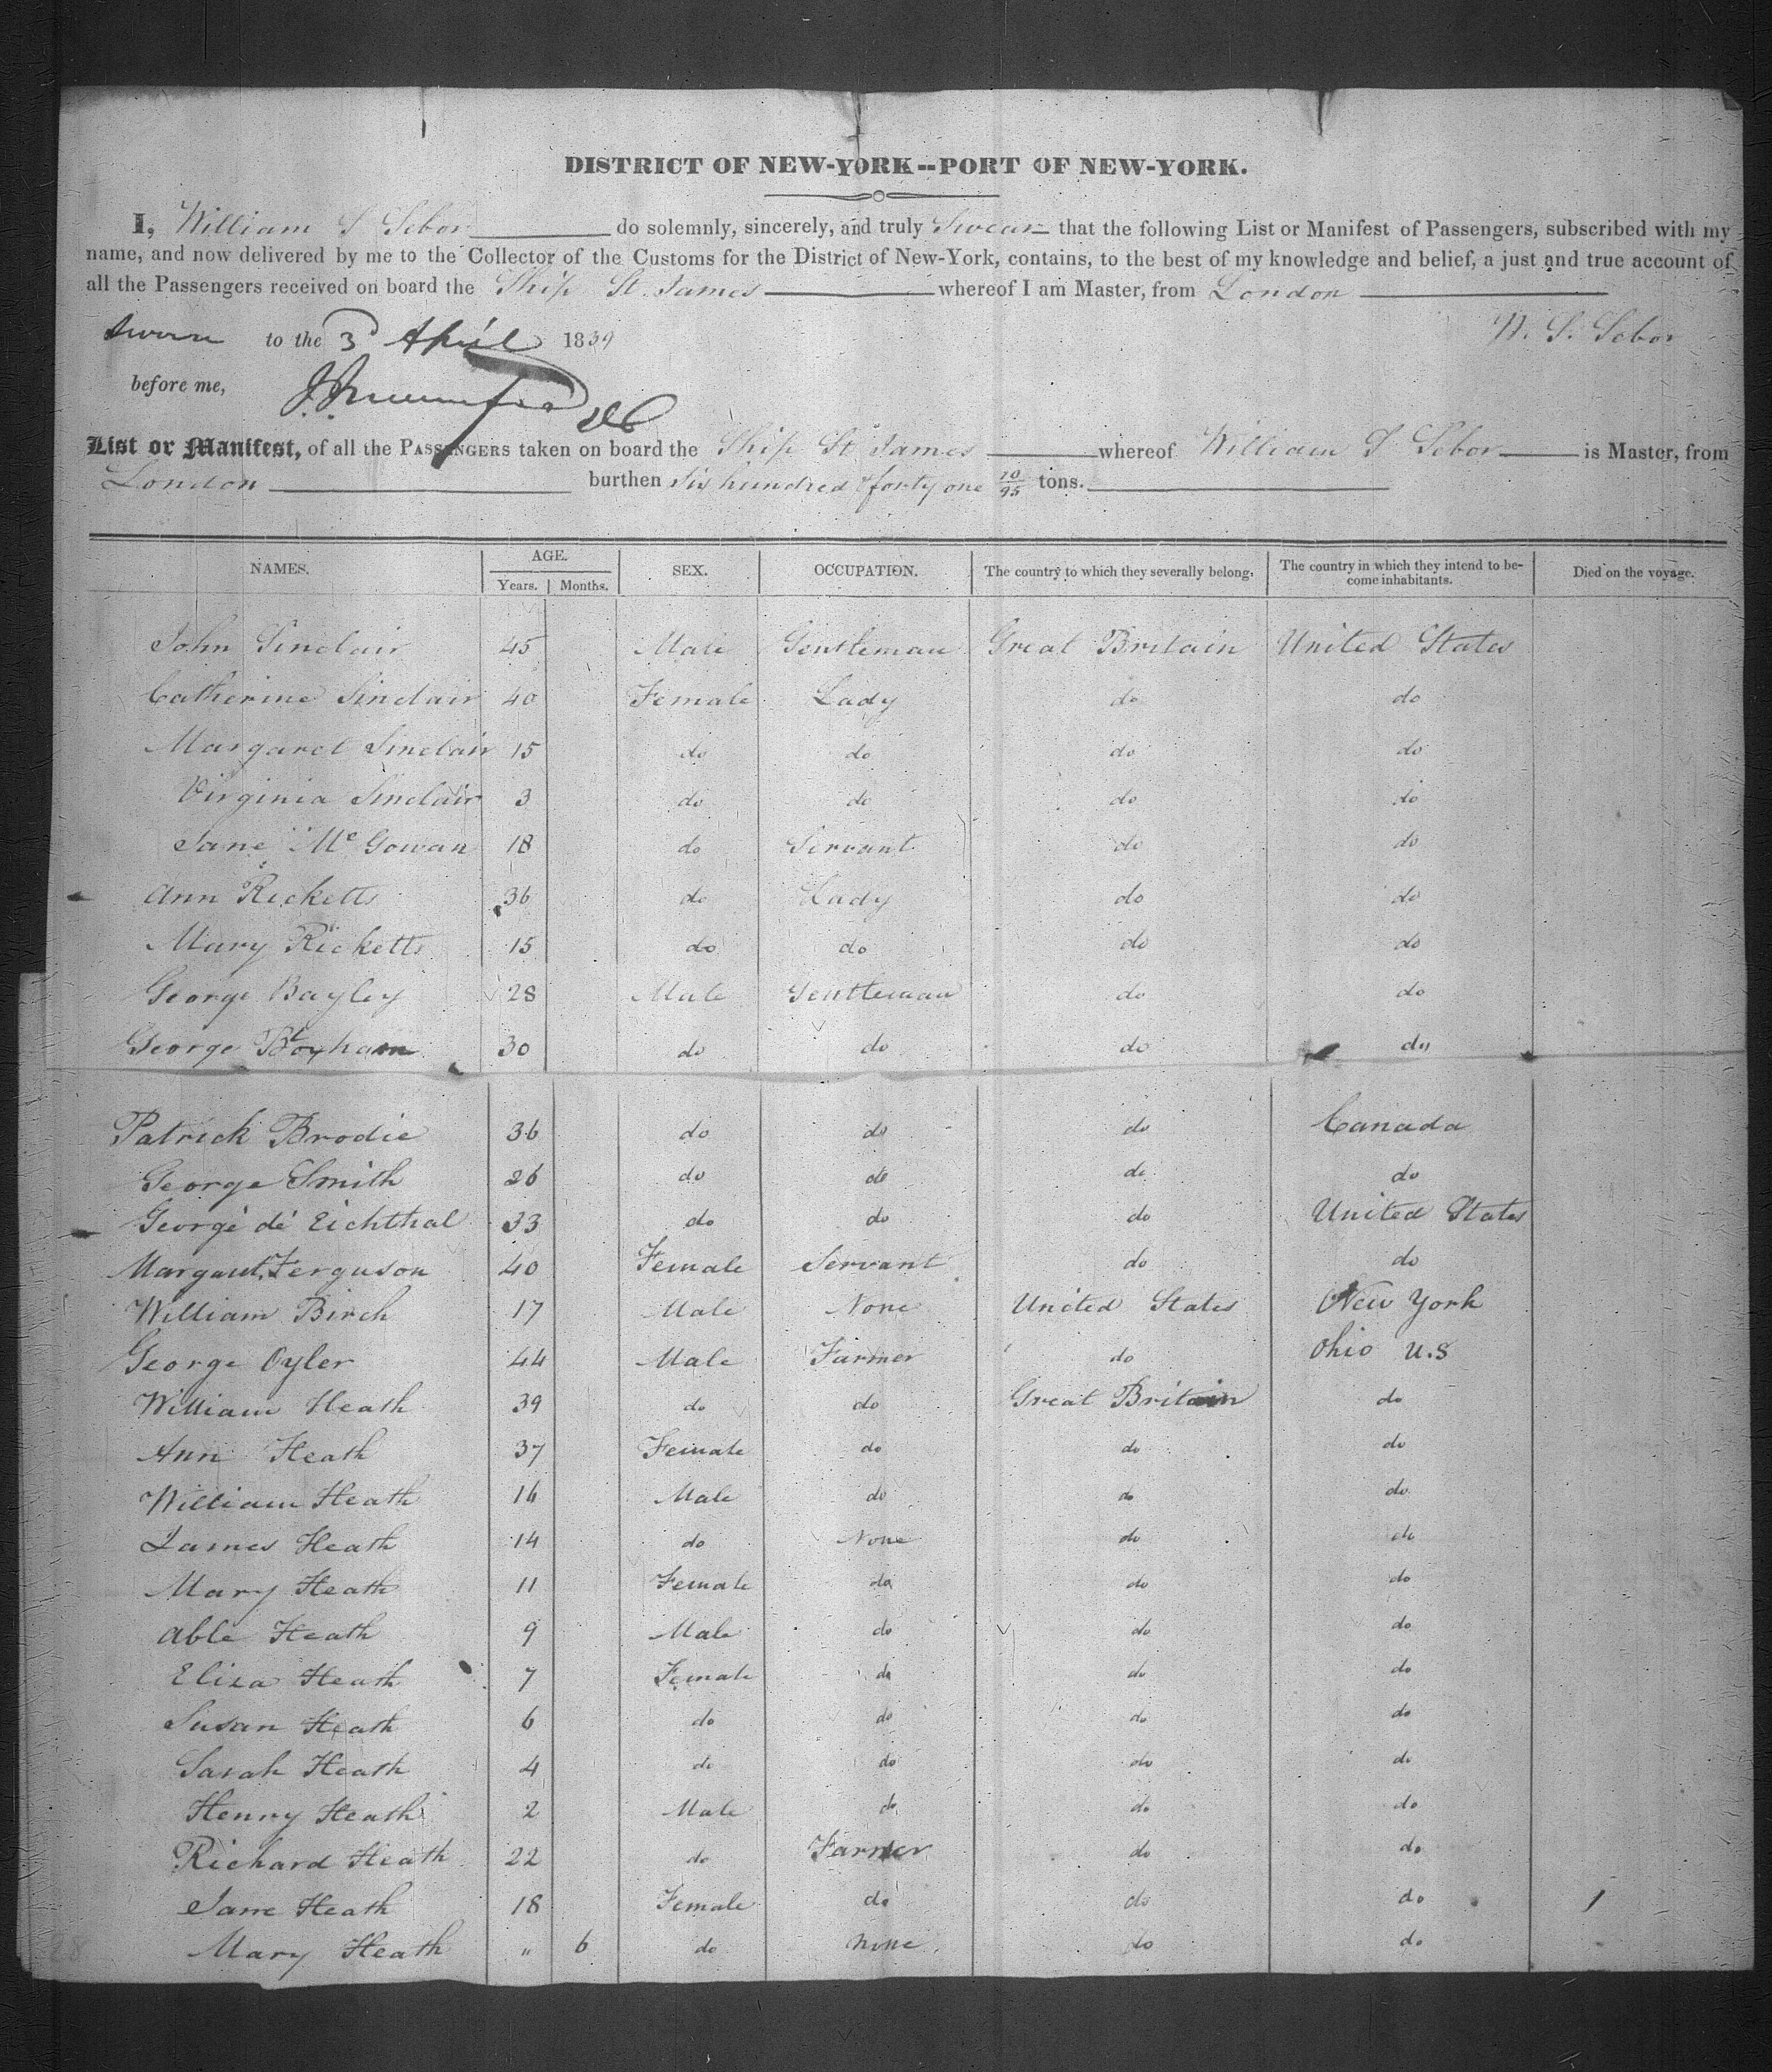 DISTRICT OF NEW-YORK--PORT OF NEW-YORK.
I, William S Sebor do solemnly, sincerely, and truly Swear that the following List or Manifest of Passengers, subscribed with my
name, and now delivered by me to the Collector of the Customs for the District of New-York, contains, to the best of my knowledge and belief, a just and true account of
all the Passengers received on board the Ship St. James whereof I am Master, from London
Sworn to the 3d April 1839 W. S. Sebor
before me,
List or Manifest, of all the PASSENGERS taken on board the Ship St James whereof William S Sebor is Master, from
London burthen Six hundred & forty one 70/95 tons.
NAMES. AGE. Years. Months. SEX. OCCUPATION. The country to which they severally belong. The country in which they intend to become inhabitants. Died on the voyage.
John Sinclair 45 Male Gentleman Great Britain United States
Catherine Sinclair 40 Female Lady do do
Margaret Sinclair 15 do do do do
Virginia Sinclair 3 do do do do
Jane Mc Gowan 18 do Servant do do
Ann Ricketts 36 do Lady do do
Mary Ricketts 15 do do do do
George Bayley 28 Male Gentleman do do
George 30 do do do do
Patrick Brodie 36 do do do Canada
George Smith 26 do do do do
George de Eichthal 33 do do do United States
Margaret Ferguson 40 Female Servant do do
William Birch 17 Male None United States New York
George Oyler 44 Male Farmer do Ohio U.S
William Heath 39 do do Great Britain do
Ann Heath 37 Female do do do
William Heath 16 Male do do do
James Heath 14 do None do do
Mary Heath 11 Female do do do
Able Heath 9 Male do do do
Eliza Heath 7 Female do do do
Susan Heath 6 do do do do
Sarah Heath 4 do do do do
Henry Heath 2 Male do do do
Richard Heath 22 do Farmer do do
Jane Heath 18 Female do do do
Mary Heath " 6 do None do do